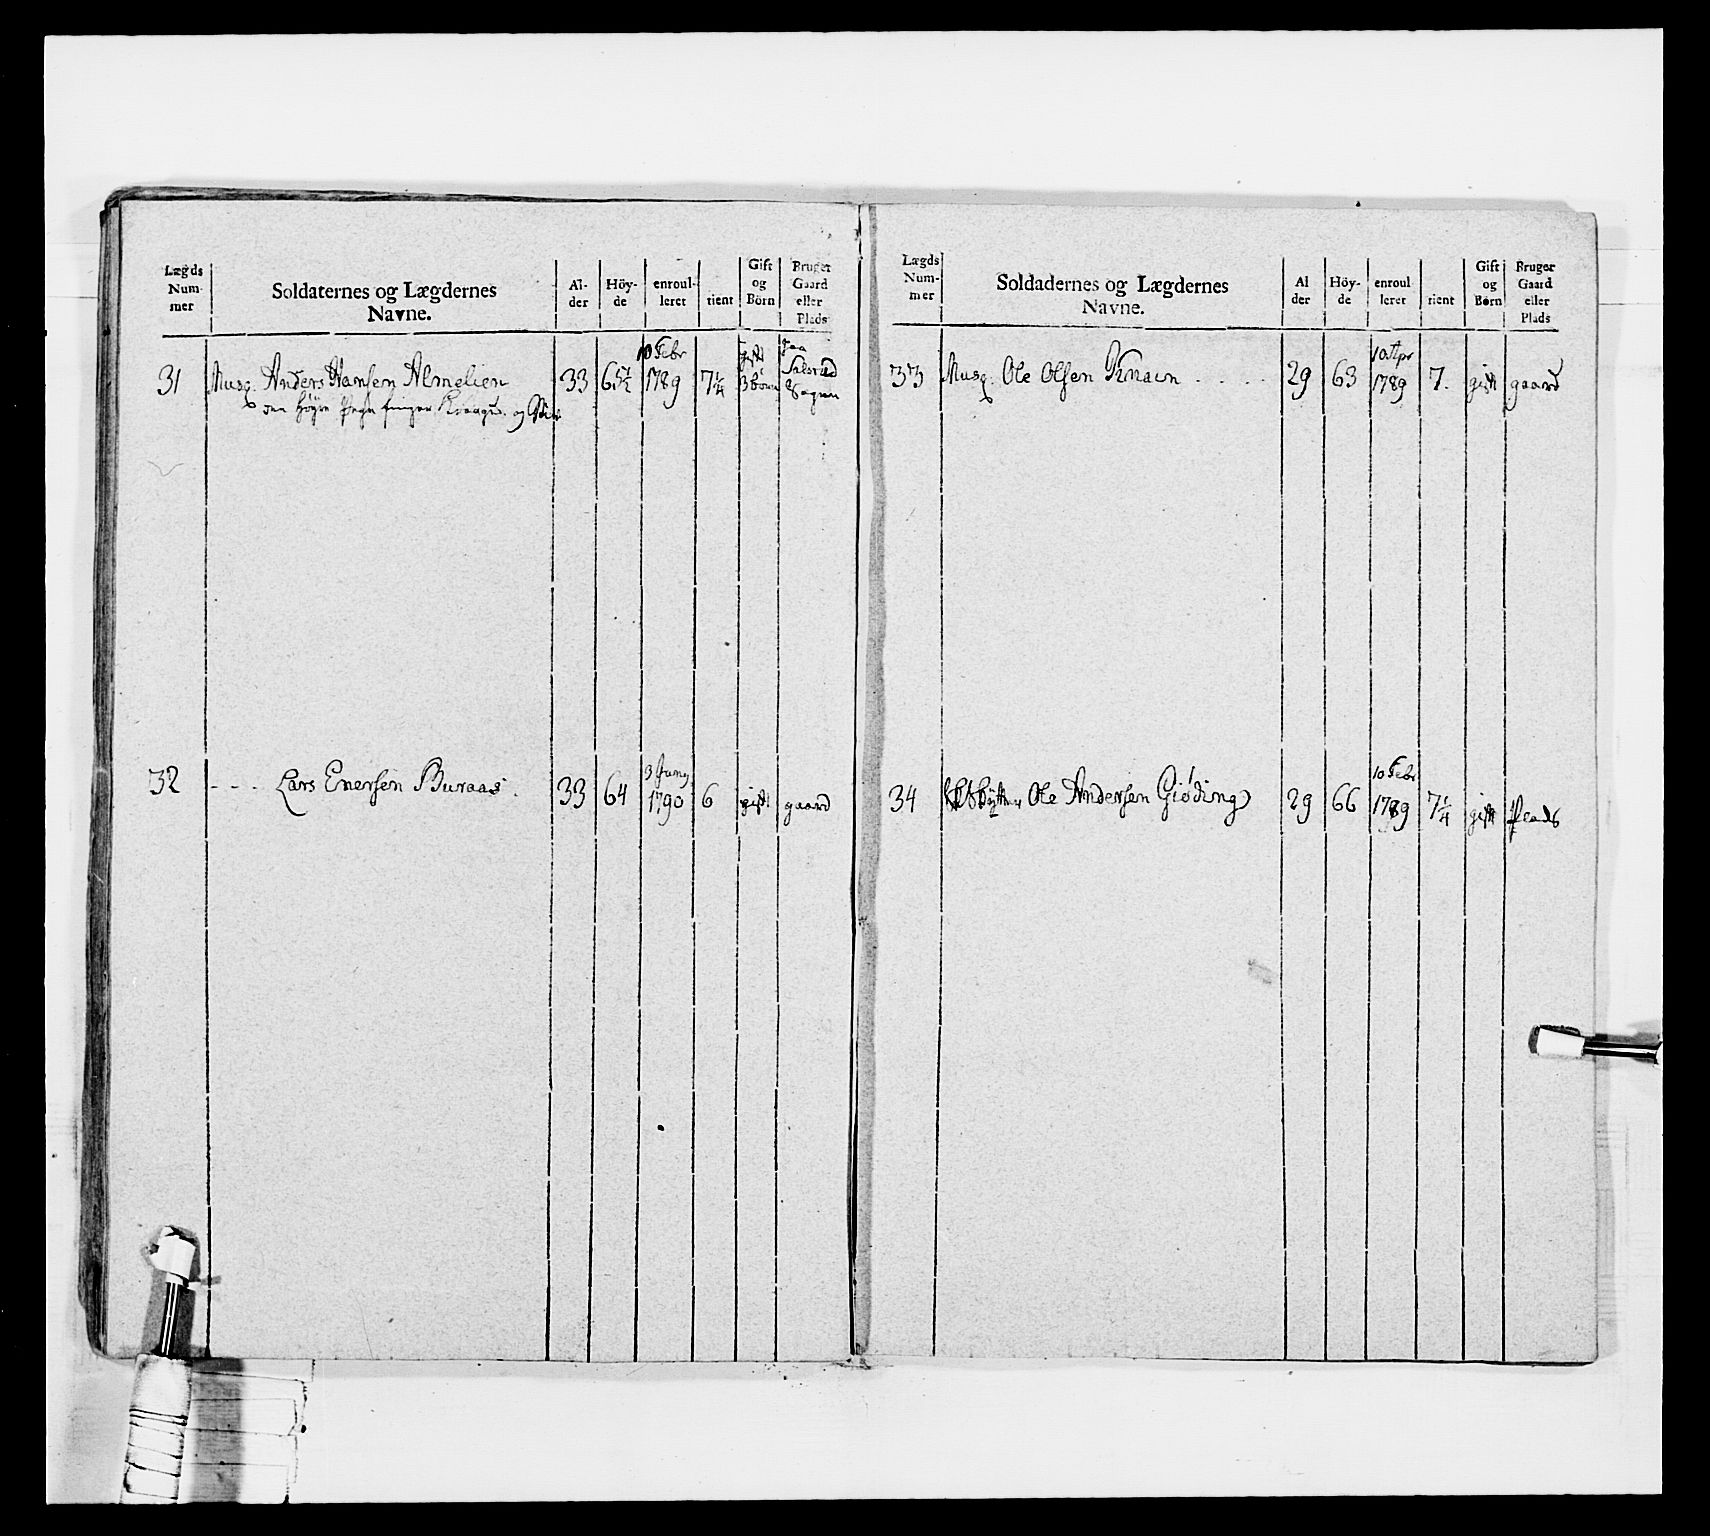 Lægds Num- mer | Soldaternes og Lægdernes Navne. | Al- der | Höy- de | enroul- leret | tient | Gift og Börn | Bruger Gaard eller Plads
10 Febr
31 Musq. Anders Hansen Almelien 33 6 5½ 1789 7¼ gift 3 Börn
32 - - - Lars Enersen Buraas . 33 64 3 Juny 1790 6 gift gaard
Lægds Num- mer | Soldadernes og Lægdernes Navne. | Al der | Höy- de | enroul leret | tient | Gift og Börn | Bruger Gaard eller Plads
33 Musq. Ole Olsen Knaen . . . . . 29 63 10 Apr 1789 7. gift gaard
34 Ole Andersen Giøding 29 66 10 Febr 1789 7¼ gift Plads